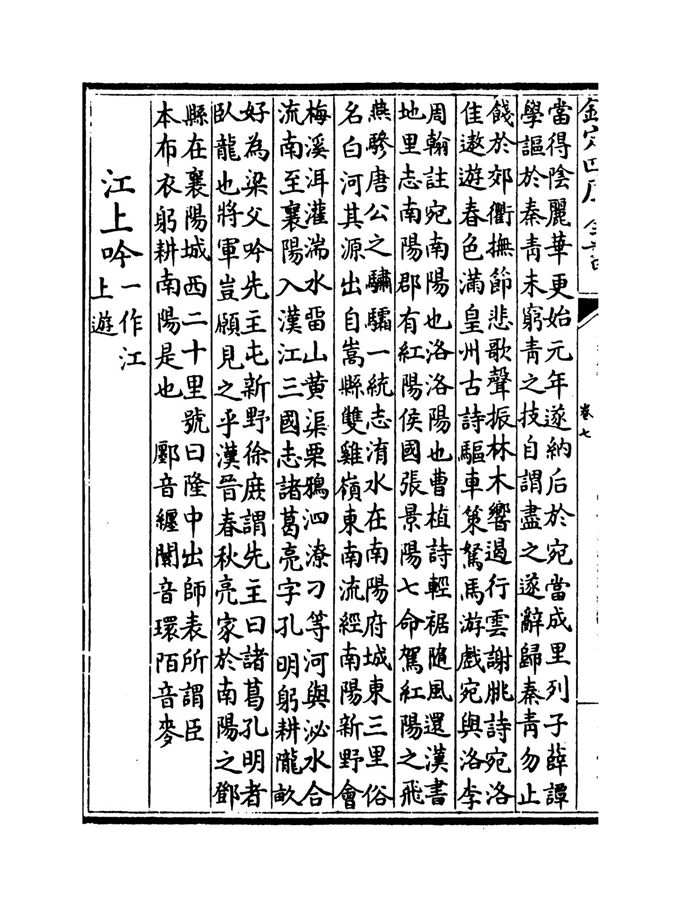 卷七
當得陰麗華更始元年遂納后於宛當成里列子薛譚
學謳於秦青未窮青之技自謂盡之遂辭歸秦青勿止
餞於郊衢撫節悲歌聲振林木響遏行雲謝朓詩宛洛
佳遨遊春色滿皇州古詩驅車策駑馬游戲宛與洛李
周翰註宛南陽也洛洛陽也曹植詩輕裾隨風還漢書
地里志南陽郡有紅陽侯國張景陽七命駕紅陽之飛
燕驂唐公之驌驦一統志淯水在南陽府城東三里俗
名白河其源出自嵩縣雙雞嶺東南流經南陽新野會
梅溪洱灌湍水畱山黄渠栗鵶泗潦刁等河與泌水合
流南至襄陽入漢江三國志諸葛亮字孔明躬耕隴畝
好為梁父吟先主屯新野徐庶謂先主曰諸葛孔明者
臥龍也將軍豈願見之乎漢晉春秋亮家於南陽之鄧
縣在襄陽城西二十里號曰隆中出師表所謂臣
本布衣躬耕南陽是也 酈音纏闤音環陌音麥
江上吟一作江
上遊